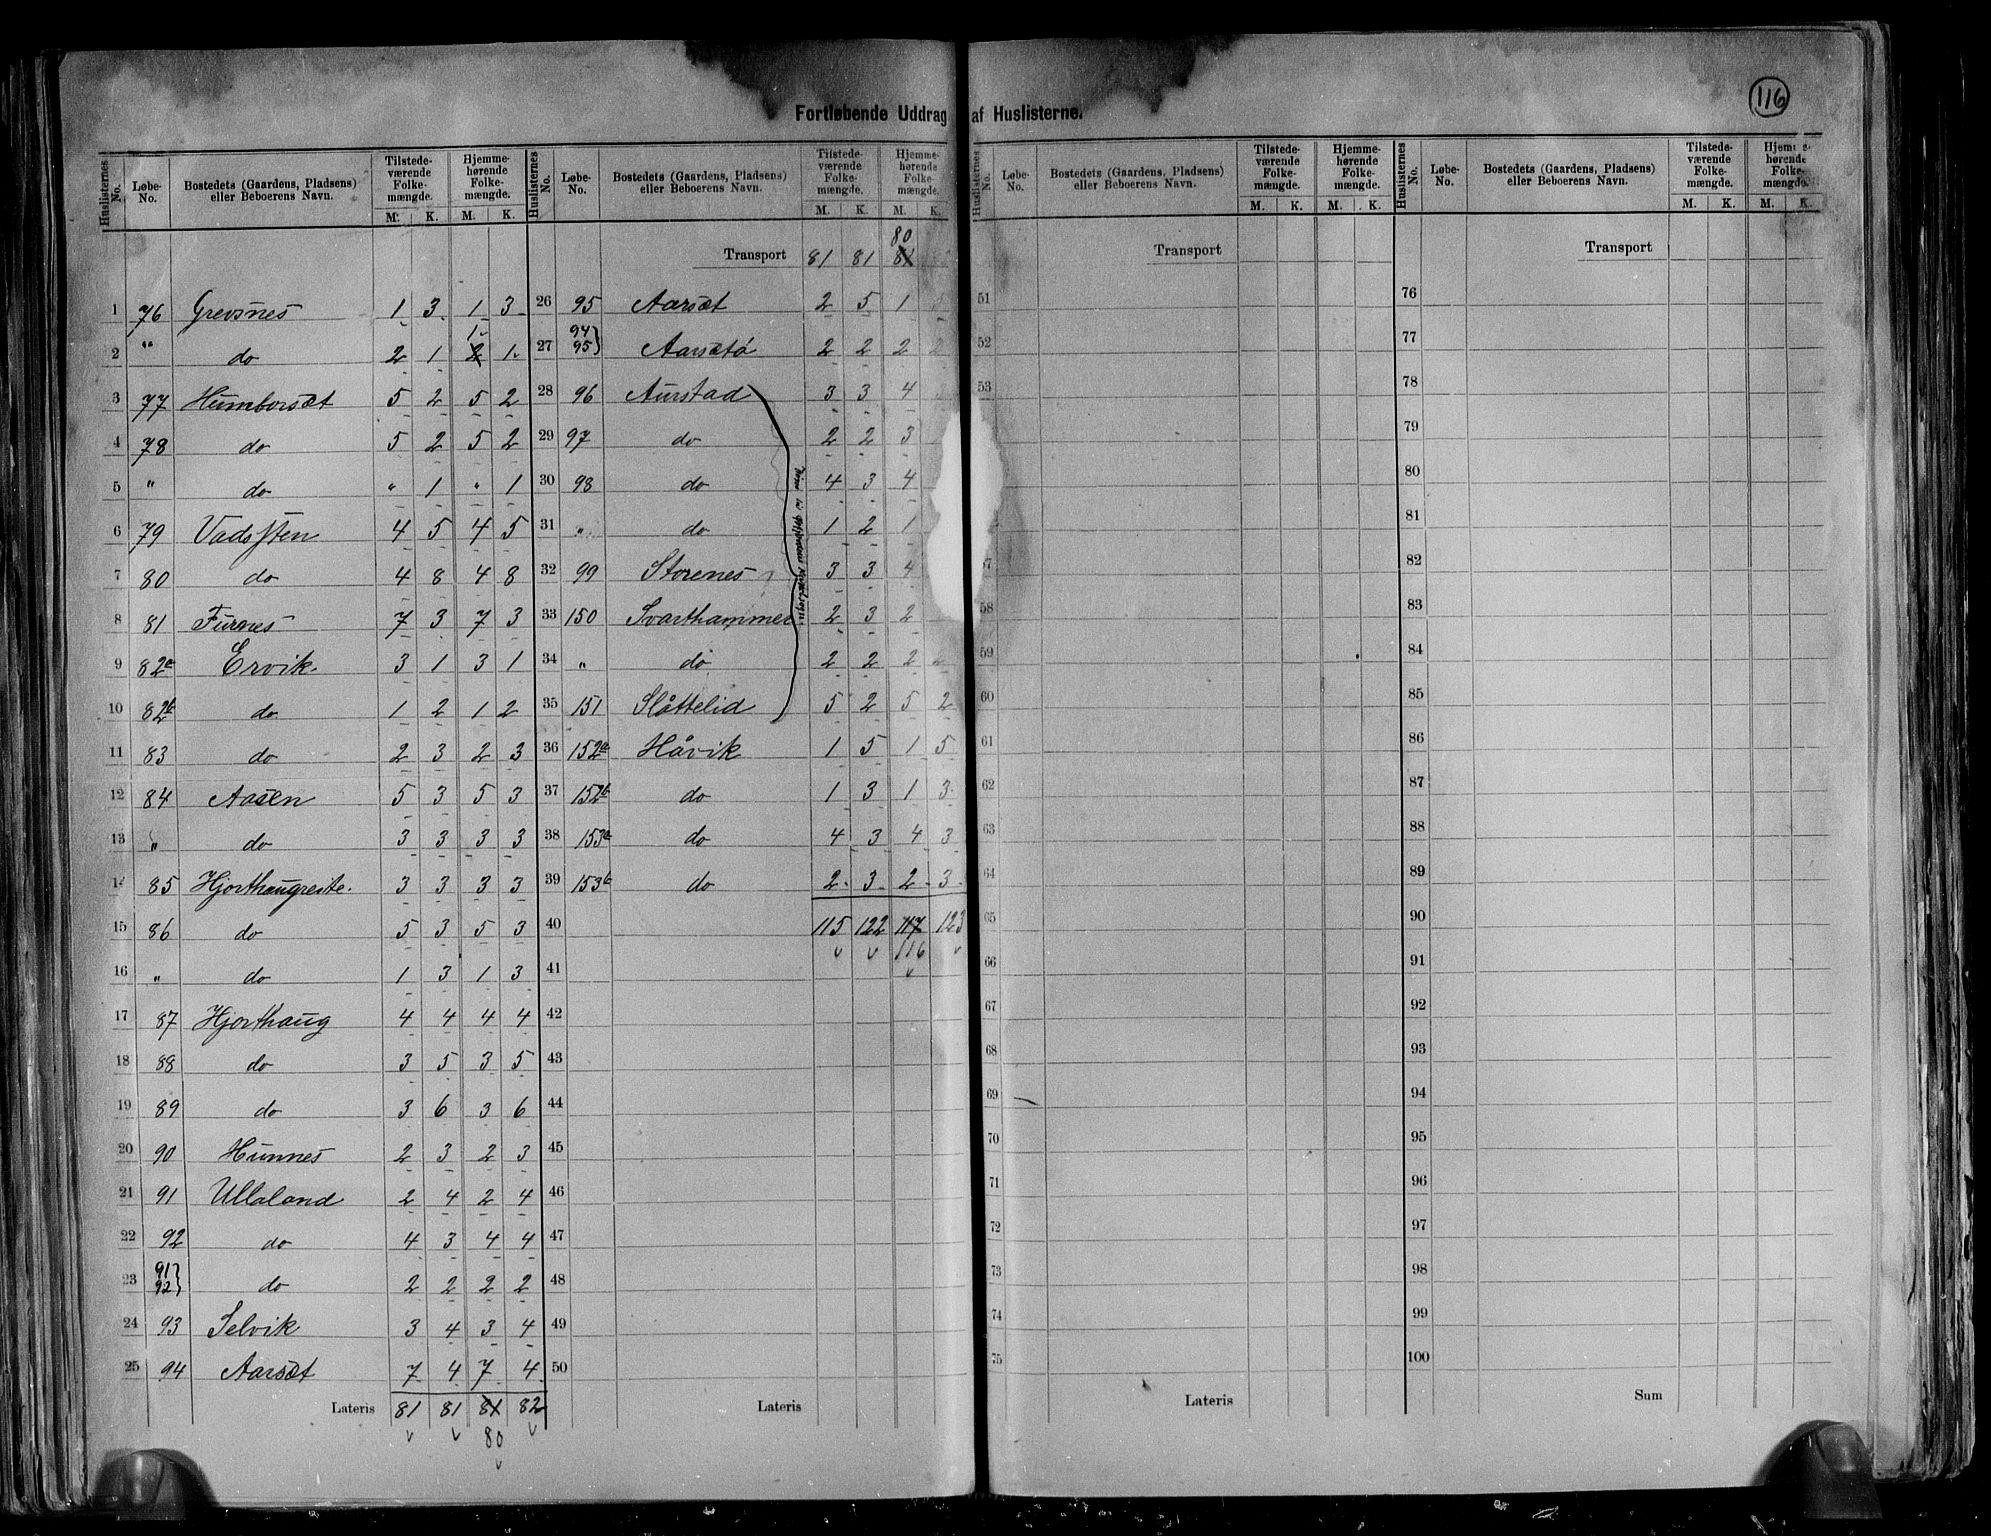 116
Fortløbende Uddrag af Huslisterne.
Huslisternes No. Løbe-No. Bostedets (Gaardens, Pladsens) eller Beboerens Navn. Tilstede-værende Folke-mængde. M. K. Hjemme-hørende Folke-mængde. M. K.
1 76 Grevsnes 1 3 1 3
2 " do 2 1 2 1 1
3 77 Humborsæt 5 2 5 2
4 78 do 5 2 5 2
5 " do " 1 " 1
6 79 Vadsften 4 5 4 5
7 80 do 4 8 4 8
8 81 Furnes 7 3 7 3
9 82a Ervik. 3 1 3 1
10 82b do 1 2 1 2
11 83 do 2 3 2 3
12 84 Aasen 5 3 5 3
13 " do 3 3 3 3
14 85 Hjorthaugreite. 3 3 3 3
15 86 do 5 3 5 3
16 " do 1 3 1 3
17 87 Hjorthaug 4 4 4 4
18 88 do 3 5 3 5
19 89 do 3 6 3 6
20 90 Hunnes 2 3 2 3
21 91 Ullaland 2 4 2 4
22 92 do 4 3 4 4
23 91 92} do 2 2 2 2
24 93 Selvik 3 4 3 4
25 94 Aarsæt 7 4 7 4
Lateris 81 81 81 82
80
Huslisternes No. Løbe-No. Bostedets (Gaardens, Pladsens) eller Beboerens Navn. Tilstede-værende Folke-mængde. M. K. Hjemme-hørende Folke-mængde. M. K.
80
Transport 81 81 81
26 95 Aarsæt 2 5 1
27 94 95} Aarsætø 2 2 2 2
28 96 Aurstad 3 3 4
29 97 do 2 2 3
30 98 do 4 3 4
31 " do 1 2 1
32 99 Storenes 3 3 4
33 150 Svarthammer 2 3 2
34 " do 2 2 2 2
35 151 Slåttelid 5 2 5 2
36 152a Håvik 1 5 1 5
37 152b do 1 3 1 3
38 153a do 4 3 4 3
39 153b do 2 3 2 3
40 115 122 117 123
116
41
42
43
44
45
46
47
48
49
50
Lateris
Huslisternes No. Løbe-No. Bostedets (Gaardens, Pladsens) eller Beboerens Navn. Tilstede-værende Folke-mængde. M. K. Hjemme-hørende Folke-mængde. M. K.
Transport
51
52
53
57
58
59
60
61
62
63
64
65
66
67
68
69
70
71
72
73
74
75
Lateris
Huslisternes No. Løbe-No. Bostedets (Gaardens, Pladsens) eller Beboerens Navn. Tilstede-værende Folke-mængde. M. K. Hjemme-hørende Folke-mængde. M. K.
Transport
76
77
78
79
80
81
82
83
84
85
86
87
88
89
90
91
92
93
94
95
96
97
98
99
100
Sum